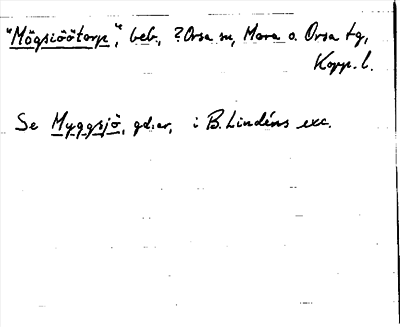 "Mögsiöötorp", beb., ? Orsa sn, Mora o. Orsa tg,
Kopp. l.
Se Myggsjö, gd.ar, i B. Lindéns exc.